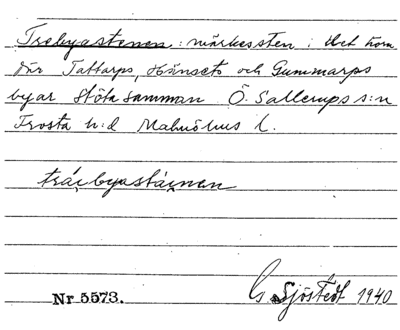 Trebyastenen: märkessten i det hörn
där Tattarps, Hänsets och Gummarps
byar stöta samman Ö. Sallerups s:n
Frosta h:d Malmöhus l.
träi̯byastäi̯nen
Nr 5573.
G Sjöstedt 1940